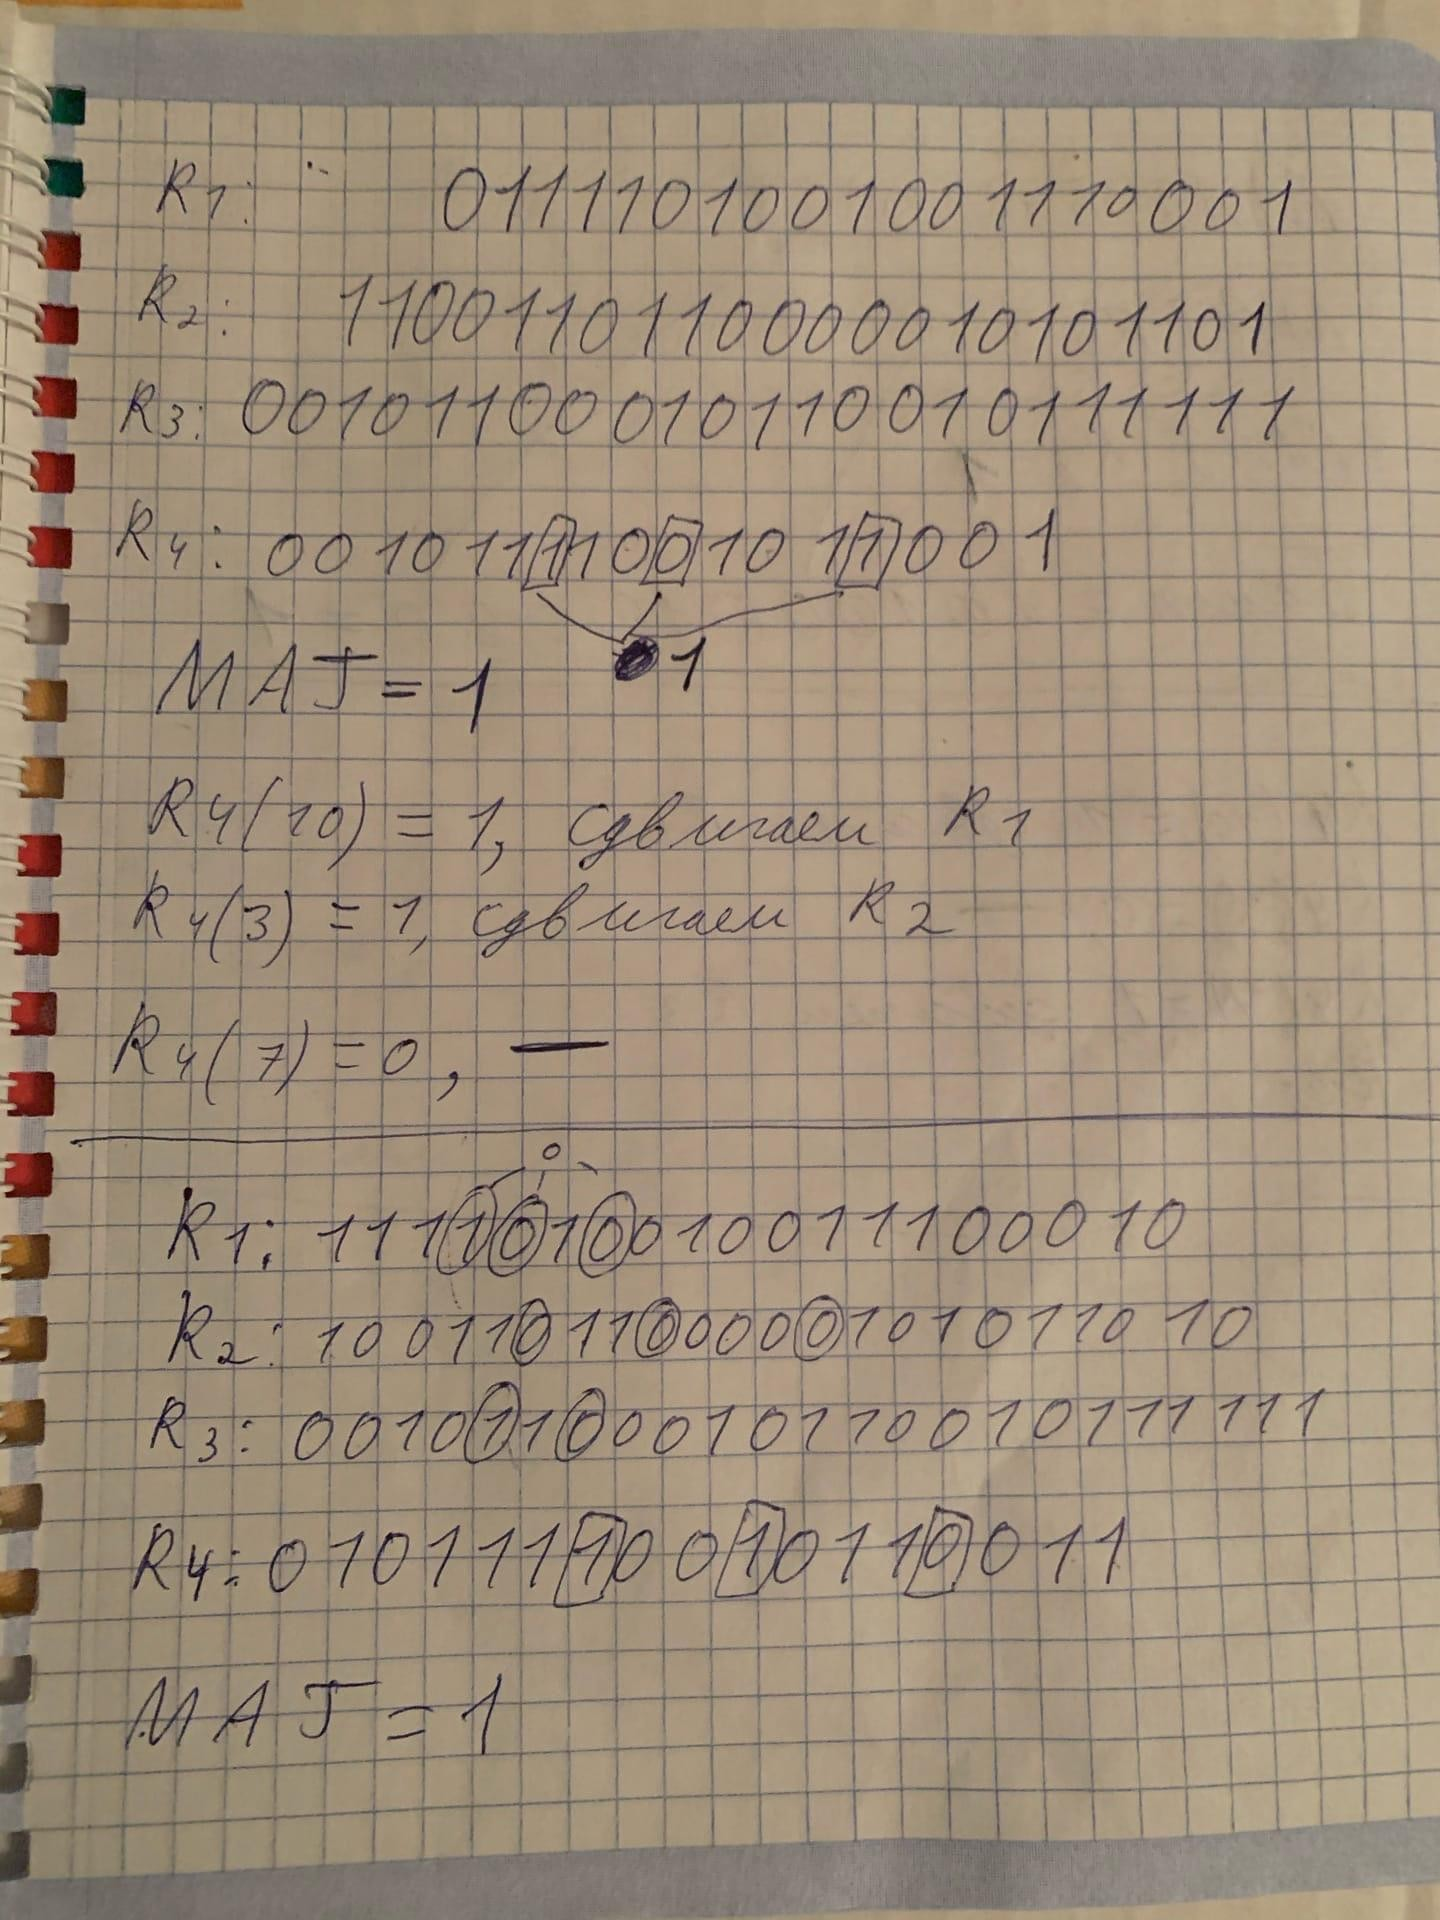 R1: 0111101001001110001
R2: 1100110110000010101101
R3: 00101100010110010111111
R4: 00101111001011001
MAJ = 1 1
R4(10) = 1, сдвигаем R1
R4(3) = 1, сдвигаем R2
R4(7) = 0, —
0
R1: 1111010010011100010
R2: 1001101100000101011010
R3: 00101100010110010111111
R4: 01011110010110011
MAJ = 1